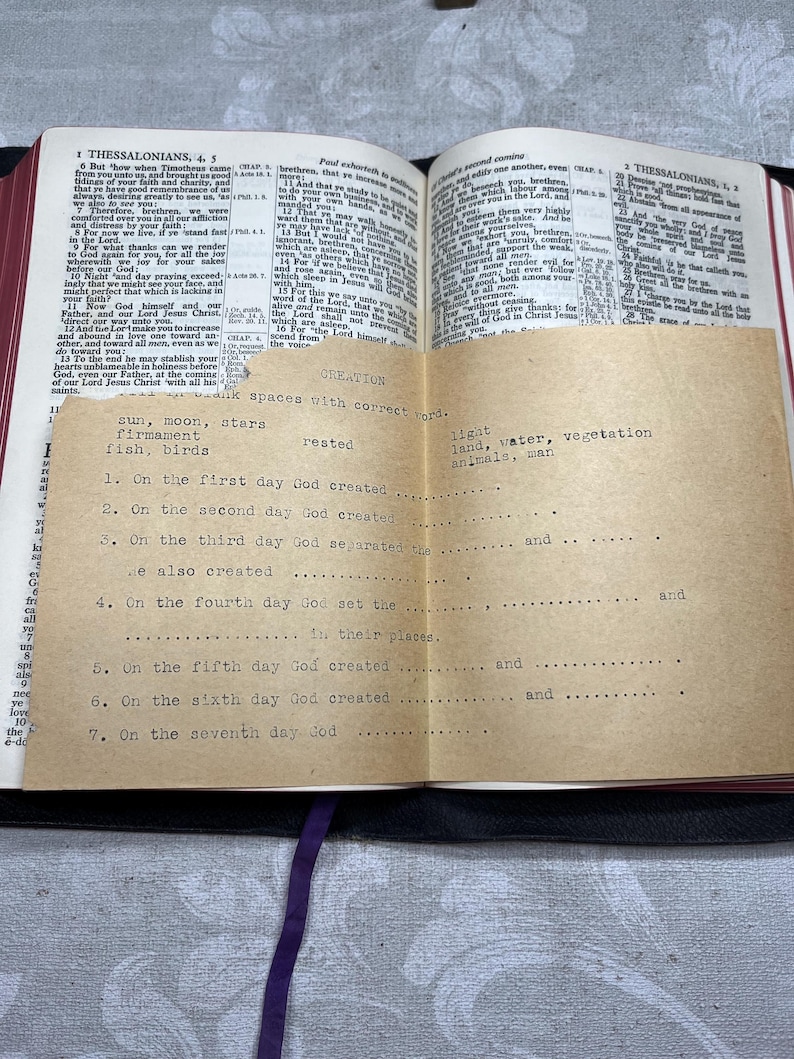 1 THESSALONIANS, 4, 5
6 But how when Timotheus came
from you unto us, and brought us good
tidings of your faith and charity, and
that ye have good remembrance of us
always, desiring greatly to see us, as
we also to see you:
7 Therefore, brethren, we were
comforted over you in all our affliction
and distress by your faith:
8 For now we live, if ye stand fast
in the Lord.
9 For what thanks can we render
to God again for you, for all the joy
wherewith we joy for your sakes
before our God;
10 Night and day praying exceed-
ingly that we might see your face, and
might perfect that which is lacking in
your faith?
11 Now God himself and our
Father, and our Lord Jesus Christ,
direct our way unto you.
12 And the Lord make you to increase
and abound in love one toward an-
other, and toward all men, even as we
do toward you:
13 To the end he may stablish your
hearts unblameable in holiness before
God, even our Father, at the coming
of our Lord Jesus Christ with all his
saints.
CHAP. 3.
Acts 18. 1.
Phil. 1. 8.
Phil. 4. 1.
Acts 26. 7.
1 Or, guide.
Zech. 14. 5.
Rev. 20. 11.
CHAP. 4.
1 Or, request.
2 Or, beseech.
Paul exhorteth to godliness
brethren, that ye increase more and
more;
11 And that ye study to be quiet, and
to do your own business, and to work
with your own hands, as we com-
manded you;
12 That ye may walk honestly
ward them that are without, and that
ye may have lack of nothing.
ignorant, brethren, concerning
which are asleep, that ye sorrow
even as others which have no
14 For if we believe that Jesus
and rose again, even so them
which sleep in Jesus will God
with him.
15 For this we say unto you by the
word of the Lord, that we which
alive and remain unto the coming
the Lord shall not prevent them
which are asleep.
16 For the Lord himself shall
scend from
the voice
Christ's second coming
and edify one another, even
we beseech you, brethren,
which labour among
are over you in the Lord, and
you;
to esteem them very highly
their work's sake. And be
among yourselves.
we exhort you, brethren,
them that are unruly, comfort
feebleminded, support the weak,
patient toward all men.
See that none render evil for
unto any man; but ever follow
which is good, both among your-
selves, and to all men.
evermore.
Pray without ceasing.
In every thing give thanks: for
is the will of God in Christ Jesus
concerning you.
CHAP. 5.
Phil. 2. 29.
2 Or, beseech.
3 Or,
disorderly.
2 THESSALONIANS, 1, 2
20 Despise not prophesyings.
21 Prove all things; hold fast that
which is good.
22 Abstain from all appearance of
evil.
23 And the very God of peace
you wholly; and I pray God
your whole spirit and soul and
body be preserved blameless unto
the coming of our Lord Jesus
Christ.
24 Faithful is he that calleth you,
who also will do it.
25 Brethren, pray for us.
26 Greet all the brethren with an
holy kiss.
27 I charge you by the Lord that
this epistle be read unto all the holy
brethren.
28 The grace of our
CREATION
Fill in blank spaces with correct word.
sun, moon, stars
firmament
fish, birds
rested
light
land, water, vegetation
animals, man
1. On the first day God created .......... .
2. On the second day God created .......... .
3. On the third day God separated the ......... and .......... .
He also created .................. .
4. On the fourth day God set the ........ , ................ and
.................. in their places.
5. On the fifth day God created .......... and ............... .
6. On the sixth day God created ............. and .......... .
7. On the seventh day God .............. .